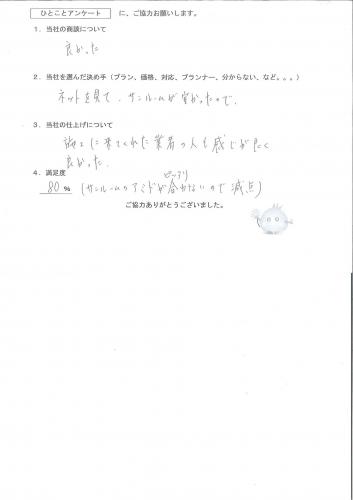 ひとことアンケート に、ご協力お願いします。
1．当社の商談について
良かった
2．当社を選んだ決め手（プラン、価格、対応、プランナー、分からない、など。。。）
ネットを見て、サンルームが安かったので、
3．当社の仕上げについて
施工に来てくれた業者の人も感じが良く
良かった。
4．満足度
ピッタリ
80 %（サンルームのアミドが合わないので減点）
ご協力ありがとうございました。